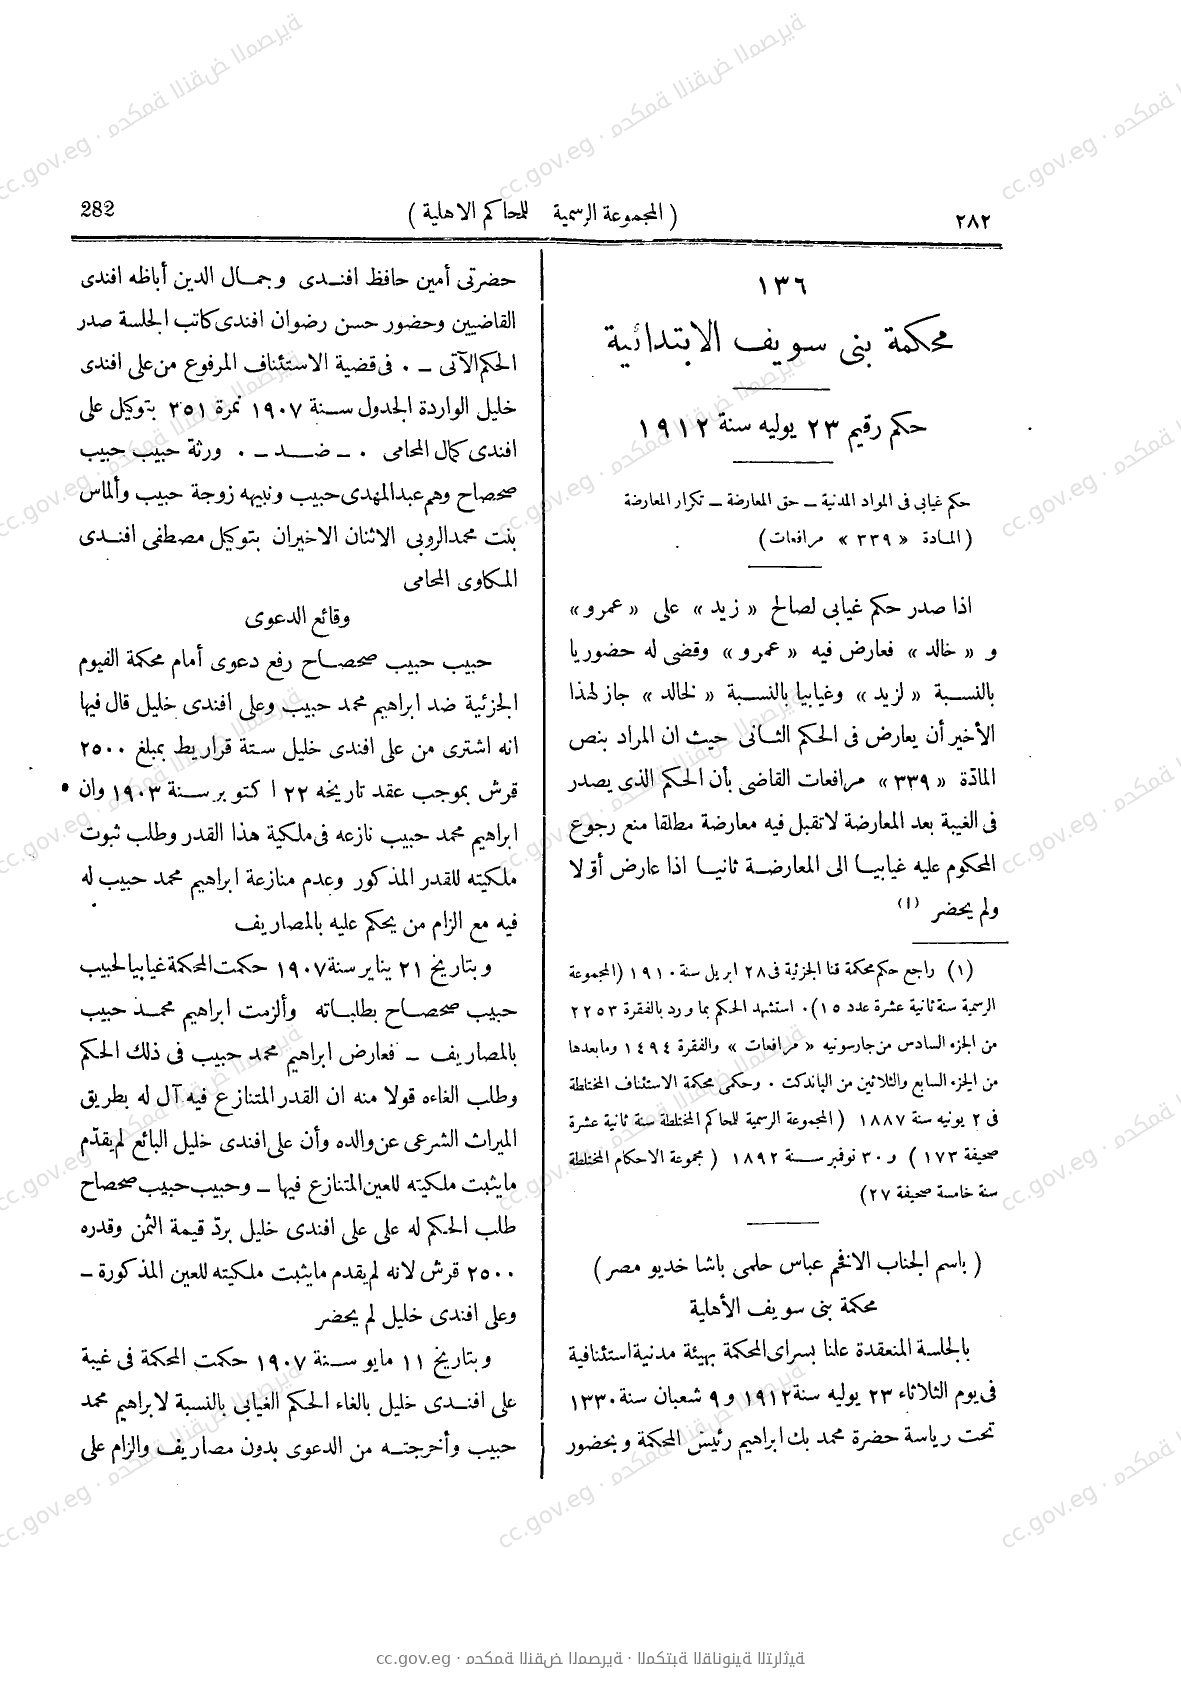 282
( المجموعة الرسمية للمحاكم الاهلية )
٢٨٢
١٣٦
محكمة بنى سويف الابتدائية
حكم رقيم ٢٣ يوليه سنة ١٩١٢
حكم غيابى فى المواد المدنية ــ حق المعارضة ــ تكرار المعارضة
( المادة « ٣٣٩ » مرافعات )
اذا صدر حكم غيابى لصالح « زيد » على « عمرو »
و « خالد » فعارض فيه « عمرو » وقضى له حضوريا
بالنسبة « لزيد » وغيابيا بالنسبة « لخالد » جاز لهذا
الأخير أن يعارض فى الحكم الثانى حيث ان المراد بنص
المادّة « ٣٣٩ » مرافعات القاضى بأن الحكم الذى يصدر
فى الغيبة بعد المعارضة لا تقبل فيه معارضة مطلقا منع رجوع
المحكوم عليه غيابيا الى المعارضة ثانيا اذا عارض أوّلا
ولم يحضر (١)
(١) راجع حكم محكمة قنا الجزئية فى ٢٨ ابريل سنة ١٩١٠ (المجموعة
الرسمية سنة ثانية عشرة عدد ١٥). استشهد الحكم بما ورد بالفقرة ٢٢٥٣
من الجزء السادس من جارسونيه « مرافعات » والفقرة ١٤٩٤ وما بعدها
من الجزء السابع والثلاثين من الپاندكت . وحكمى محكمة الاستئناف المختلطة
فى ٢ يونيه سنة ١٨٨٧ ( المجموعة الرسمية للمحاكم المختلطة سنة ثانية عشرة
صحيفة ١٧٣ ) و ٣٠ نوفمبر سنة ١٨٩٢ ( مجموعة الاحكام المختلطة
سنة خامسة صحيفة ٢٧)
( باسم الجناب الافخم عباس حلمى باشا خديو مصر )
محكمة بنى سويف الأهلية
بالجلسة المنعقدة علنا بسراى المحكمة بهيئة مدنية استئنافية
فى يوم الثلاثاء ٢٣ يوليه سنة ١٩١٢ و ٩ شعبان سنة ١٣٣٠
تحت رياسة حضرة محمد بك ابراهيم رئيس المحكمة وبحضور
حضرتى أمين حافظ افندى وجمال الدين أباظه افندى
القاضيين وحضور حسن رضوان افندى كاتب الجلسة صدر
الحكم الآتى ــ . فى قضية الاستئناف المرفوع من على افندى
خليل الواردة الجدول سنة ١٩٠٧ نمرة ٣٥١ بتوكيل على
افندى كمال المحامى . ــ ضد ــ . ورثة حبيب حبيب
صحصاح وهم عبدالمهدى حبيب ونبيهه زوجة حبيب وألماس
بنت محمد الروبى الاثنان الاخيران بتوكيل مصطفى افندى
المكاوى المحامى
وقائع الدعوى
حبيب حبيب صحصاح رفع دعوى أمام محكمة الفيوم
الجزئية ضد ابراهيم محمد حبيب وعلى افندى خليل قال فيها
انه اشترى من على افندى خليل ستة قراريط بمبلغ ٢٥٠٠
قرش بموجب عقد تاريخه ٢٢ اكتوبر سنة ١٩٠٣ وان
ابراهيم محمد حبيب نازعه فى ملكية هذا القدر وطلب ثبوت
ملكيته للقدر المذكور وعدم منازعة ابراهيم محمد حبيب له
فيه مع الزام من يحكم عليه بالمصاريف
وبتاريخ ٢١ يناير سنة ١٩٠٧ حكمت المحكمة غيابيا لحبيب
حبيب صحصاح بطلباته وألزمت ابراهيم محمد حبيب
بالمصاريف ــ فعارض ابراهيم محمد حبيب فى ذلك الحكم
وطلب الغاءه قولا منه ان القدر المتنازع فيه آل له بطريق
الميراث الشرعى عن والده وأن على افندى خليل البائع لم يقدّم
ما يثبت ملكيته للعين المتنازع فيها ــ وحبيب حبيب صحصاح
طلب الحكم له على على افندى خليل بردّ قيمة الثمن وقدره
٢٥٠٠ قرش لانه لم يقدم ما يثبت ملكيته للعين المذكورة ــ
وعلى افندى خليل لم يحضر
وبتاريخ ١١ مايو سنة ١٩٠٧ حكمت المحكمة فى غيبة
على افندى خليل بالغاء الحكم الغيابى بالنسبة لابراهيم محمد
حبيب وأخرجته من الدعوى بدون مصاريف والزام على
cc.gov.eg · محكمة النقض المصرية · المكتبة القانونية التراثية